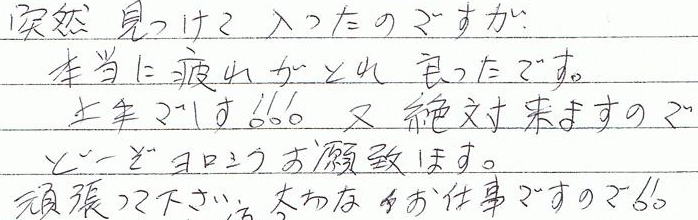 突然 見つけて 入ったのですが、
本当に疲れがとれ 良ったです。
上手でしす!!! 又 絶対来ますので
どーぞヨロシクお願致します。
頑張って下さい、大切な お仕事ですので!!